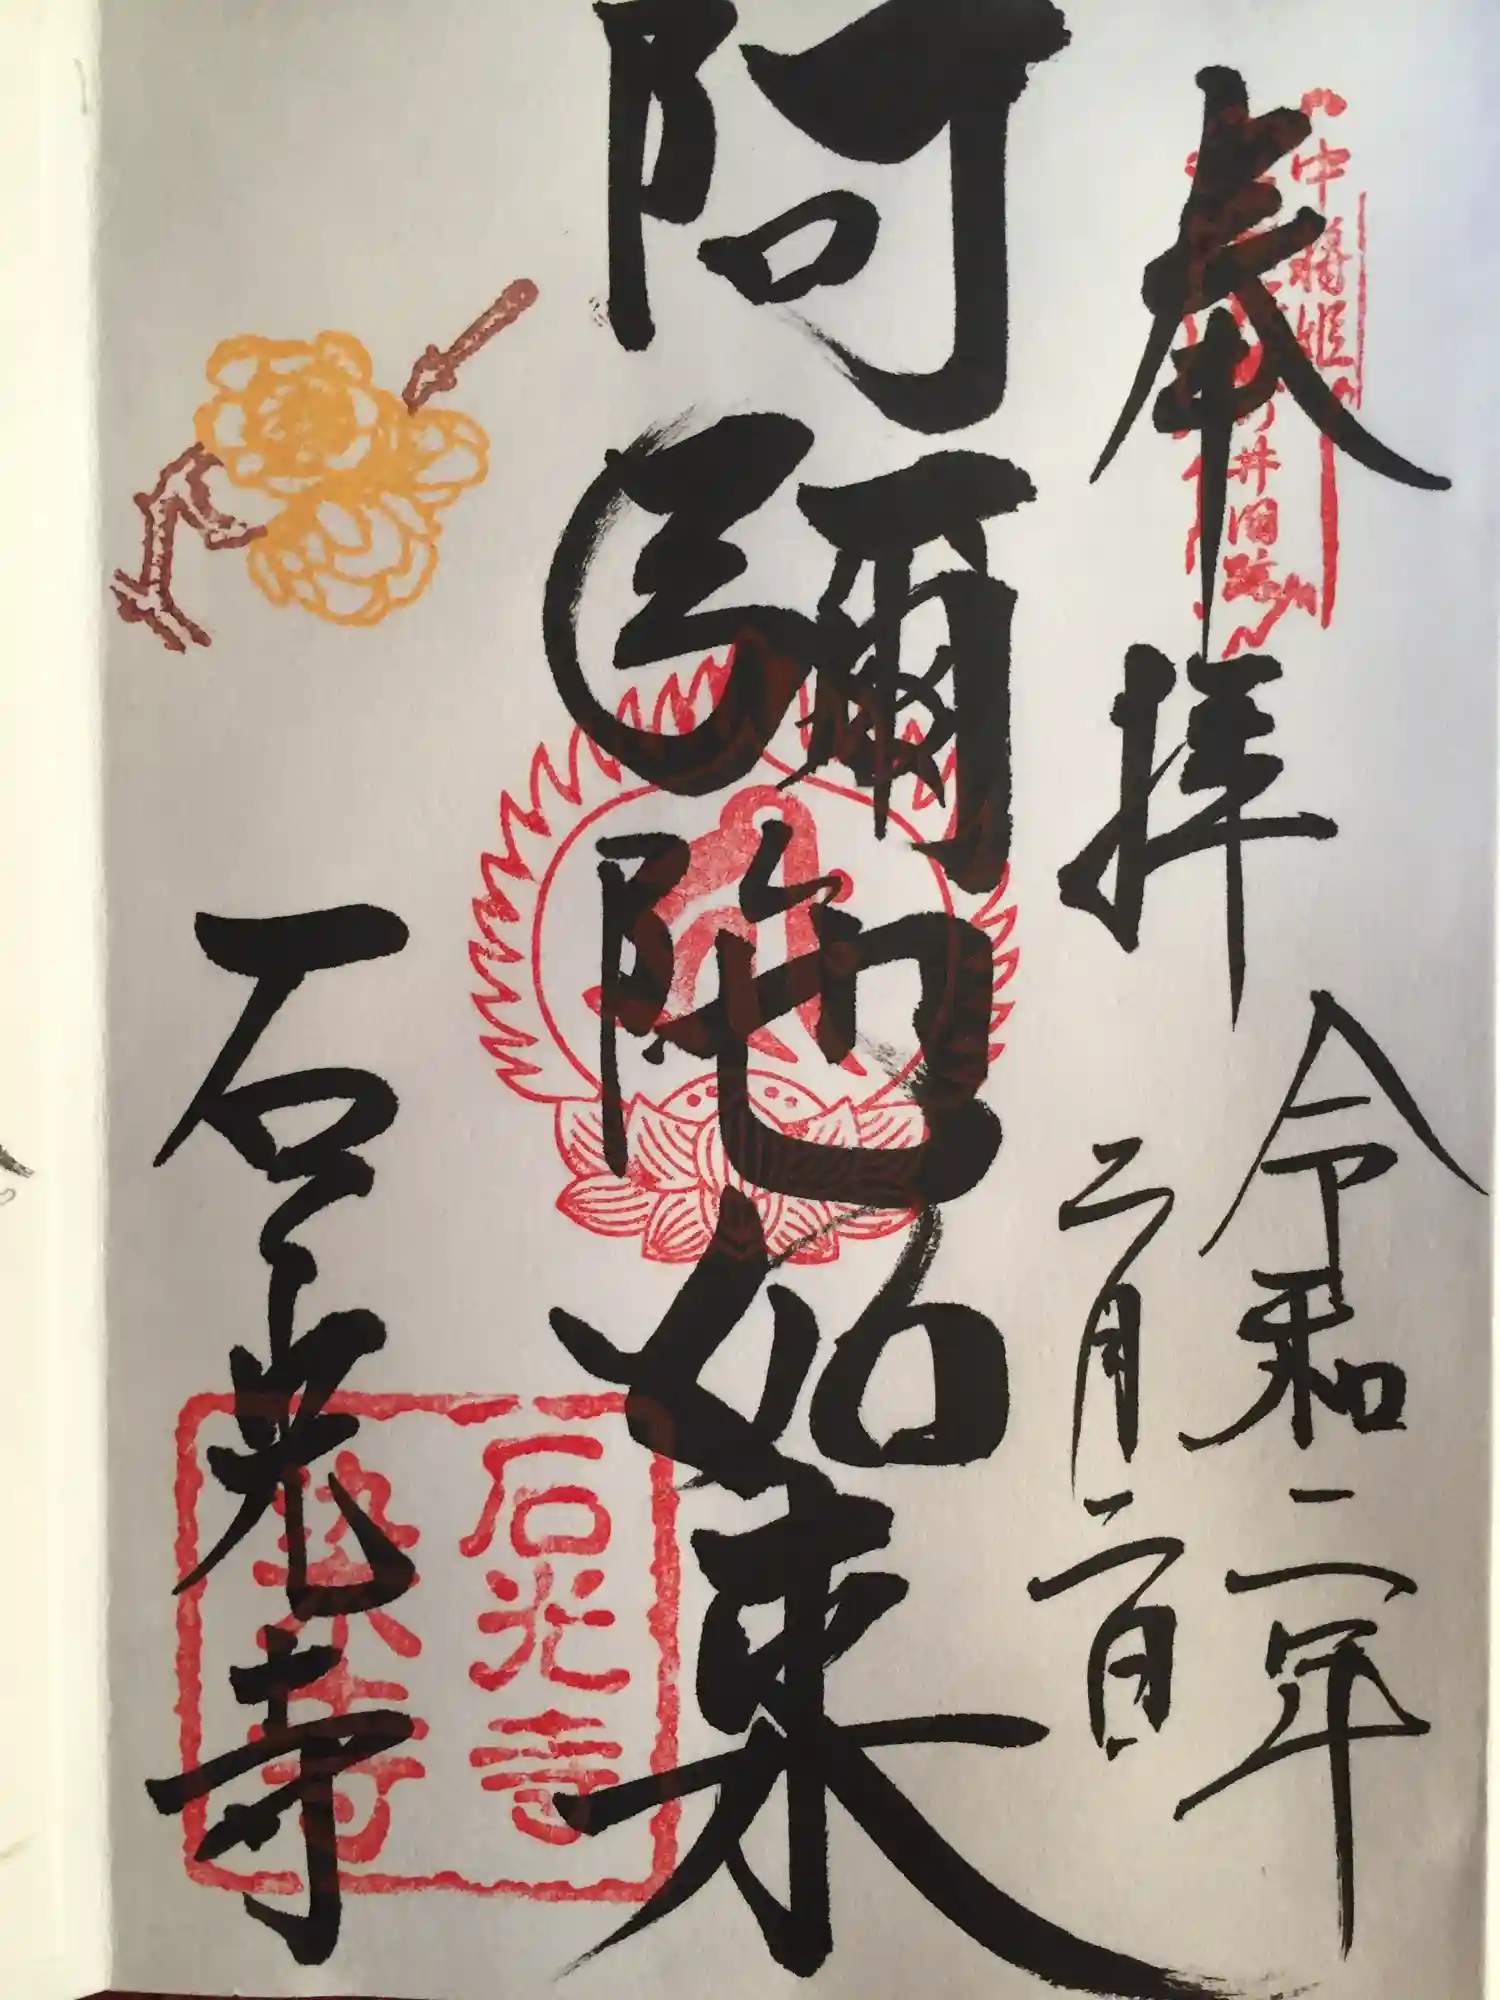 中将姫
井旧跡
奉拝
令和二年
二月二日
阿彌陀如来
石光寺
石光寺
染寺